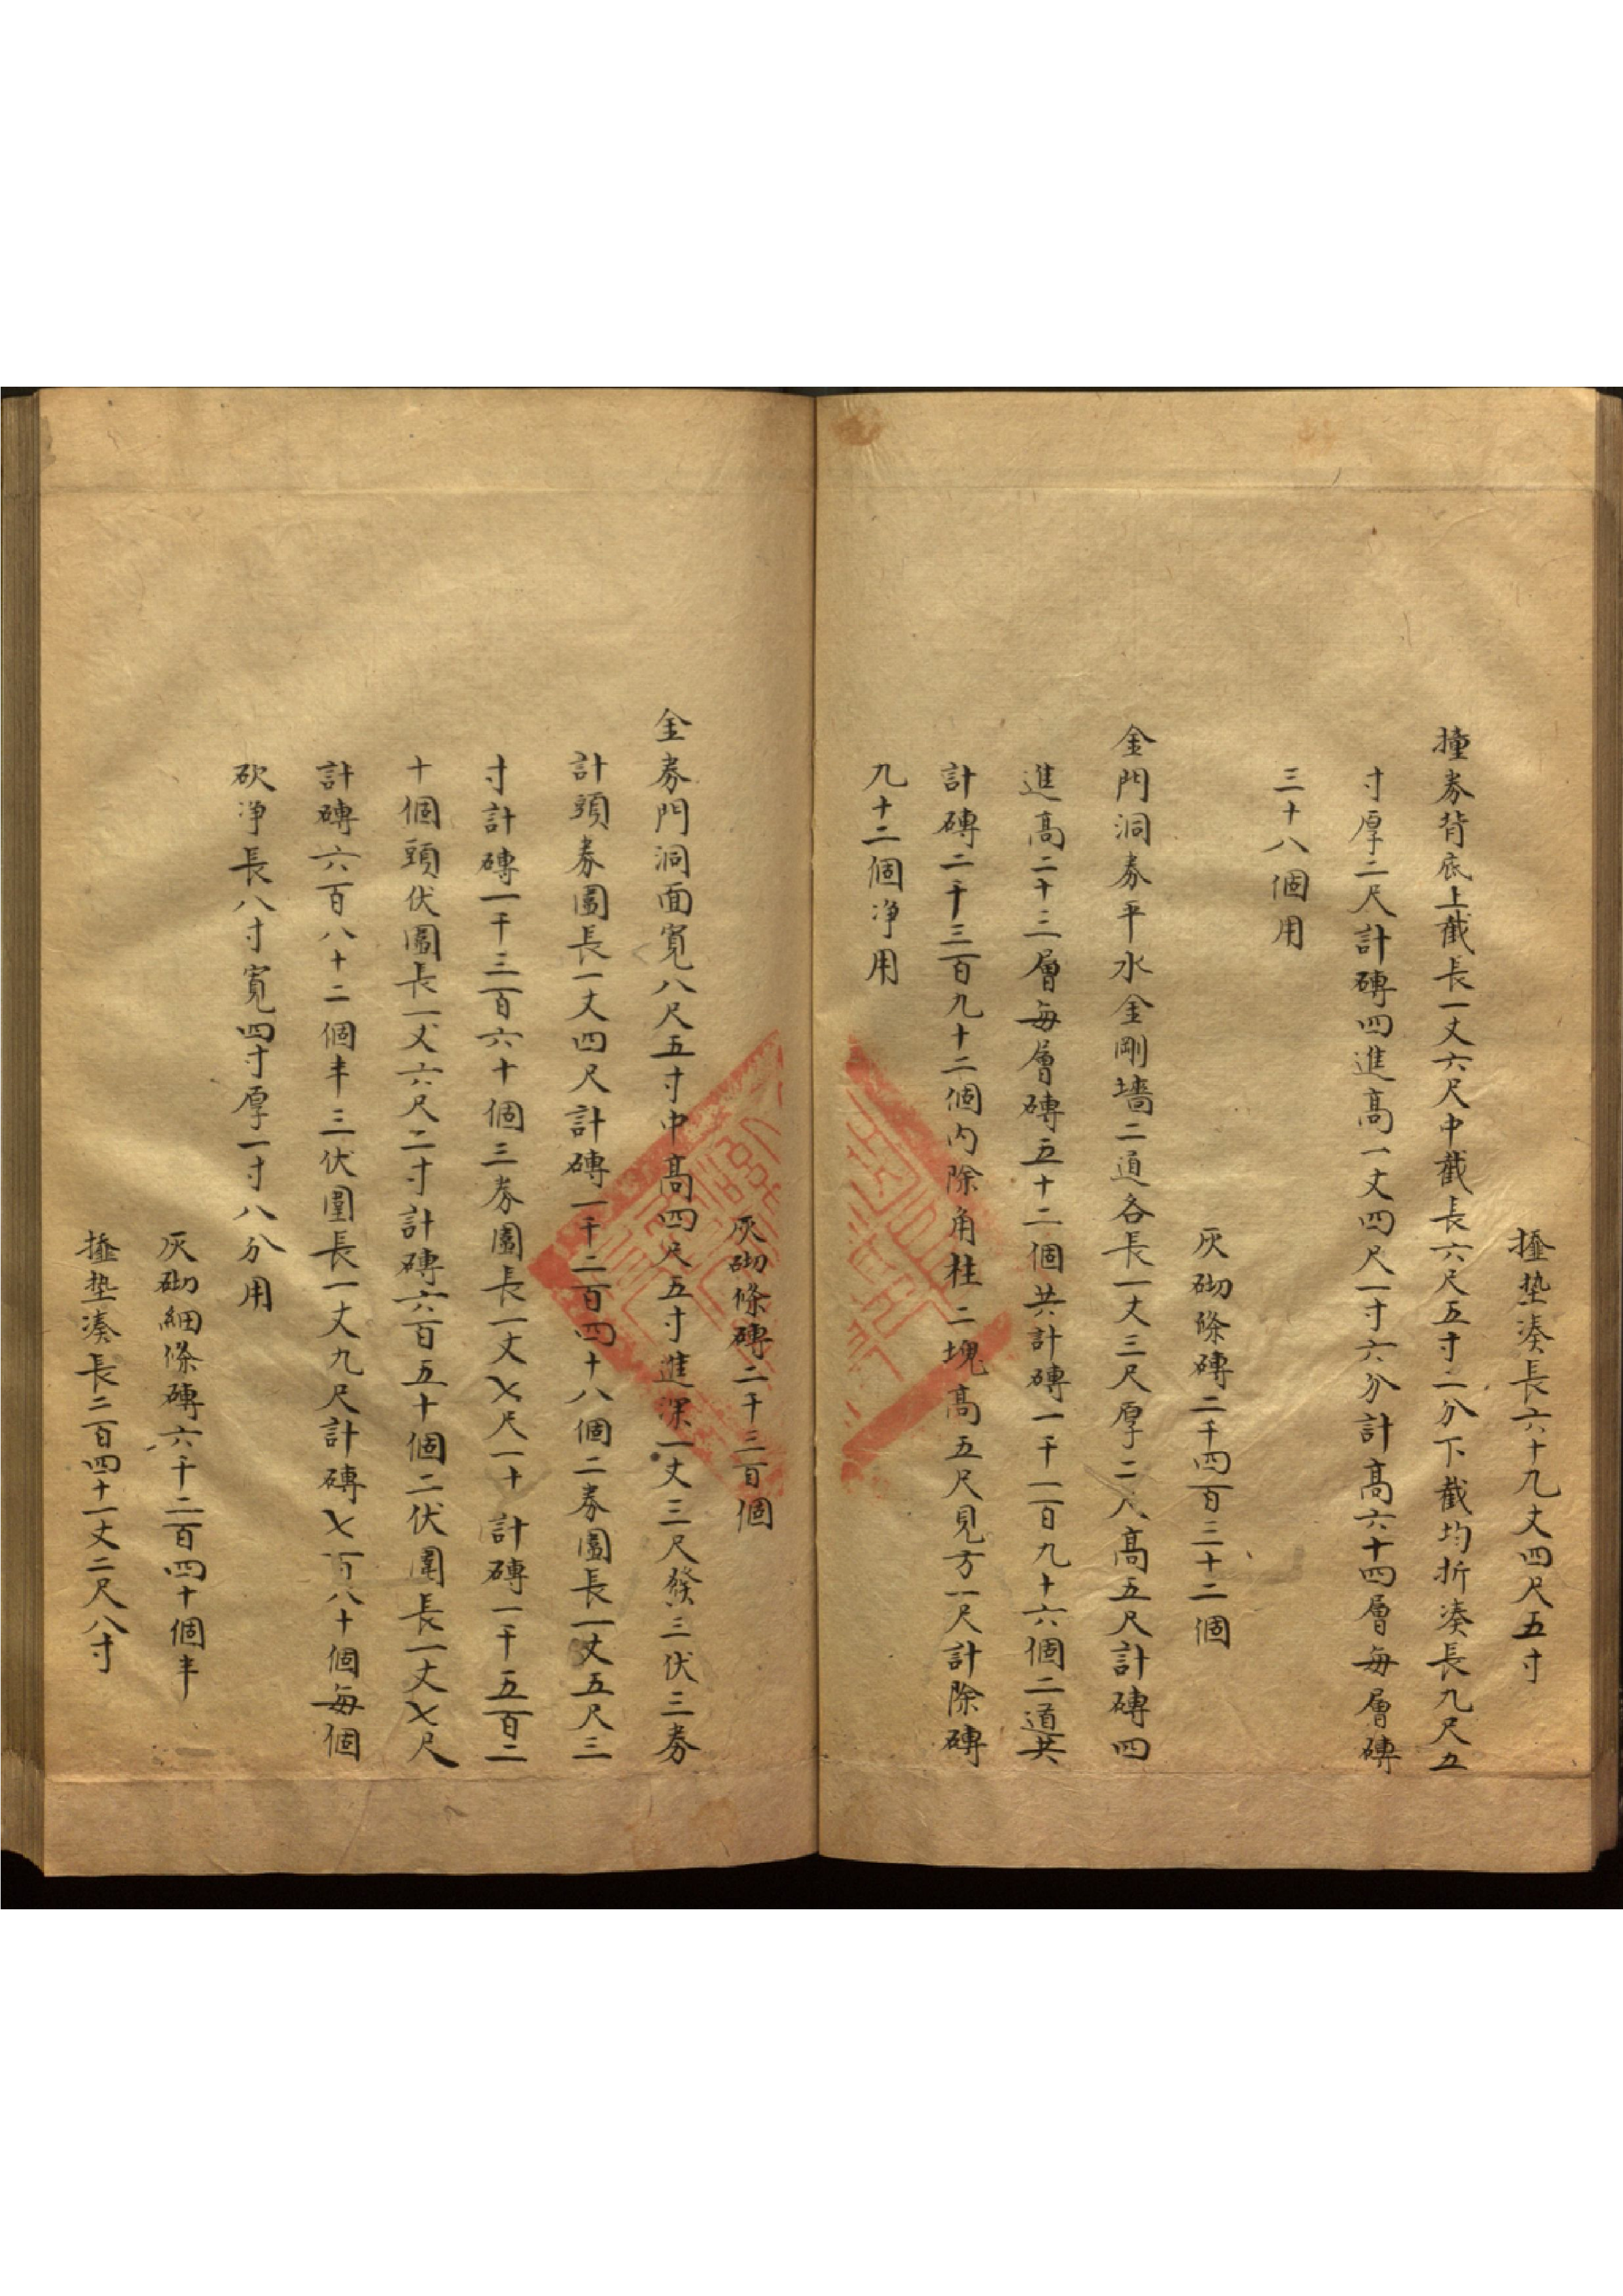 摧墊湊長六十九丈四尺五寸
撞券背底上截長一丈六尺中截長六尺五寸二分下截均折湊長九尺五
寸厚二尺計磚四進高一丈四尺一寸六分計高六十四層每層磚
三十八個用
灰砌條磚二千四百三十二個
金門洞券平水金剛墻二道各長一丈三尺厚二尺高五尺計磚四
進高二十三層每層磚五十二個共計磚一千一百九十六個二道共
計磚二千三百九十二個內除角柱二塊高五尺見方一尺計除磚
九十二個净用
灰砌條磚二千三百個
金券門洞面寬八尺五寸中高四尺五寸進深一丈三尺發三伏三券
計頭券圍長一丈四尺計磚一千二百四十八個二券圍長一丈五尺三
寸計磚一千三百六十個三券圍長一丈七尺一寸計磚一千五百二
十個頭伏圍長一丈六尺二寸計磚六百五十個二伏圍長一丈七尺
計磚六百八十二個半三伏圍長一丈九尺計磚七百八十個每個
砍净長八寸寬四寸厚一寸八分用
灰砌細條磚六千二百四十個半
摧墊湊長二百四十一丈二尺八寸